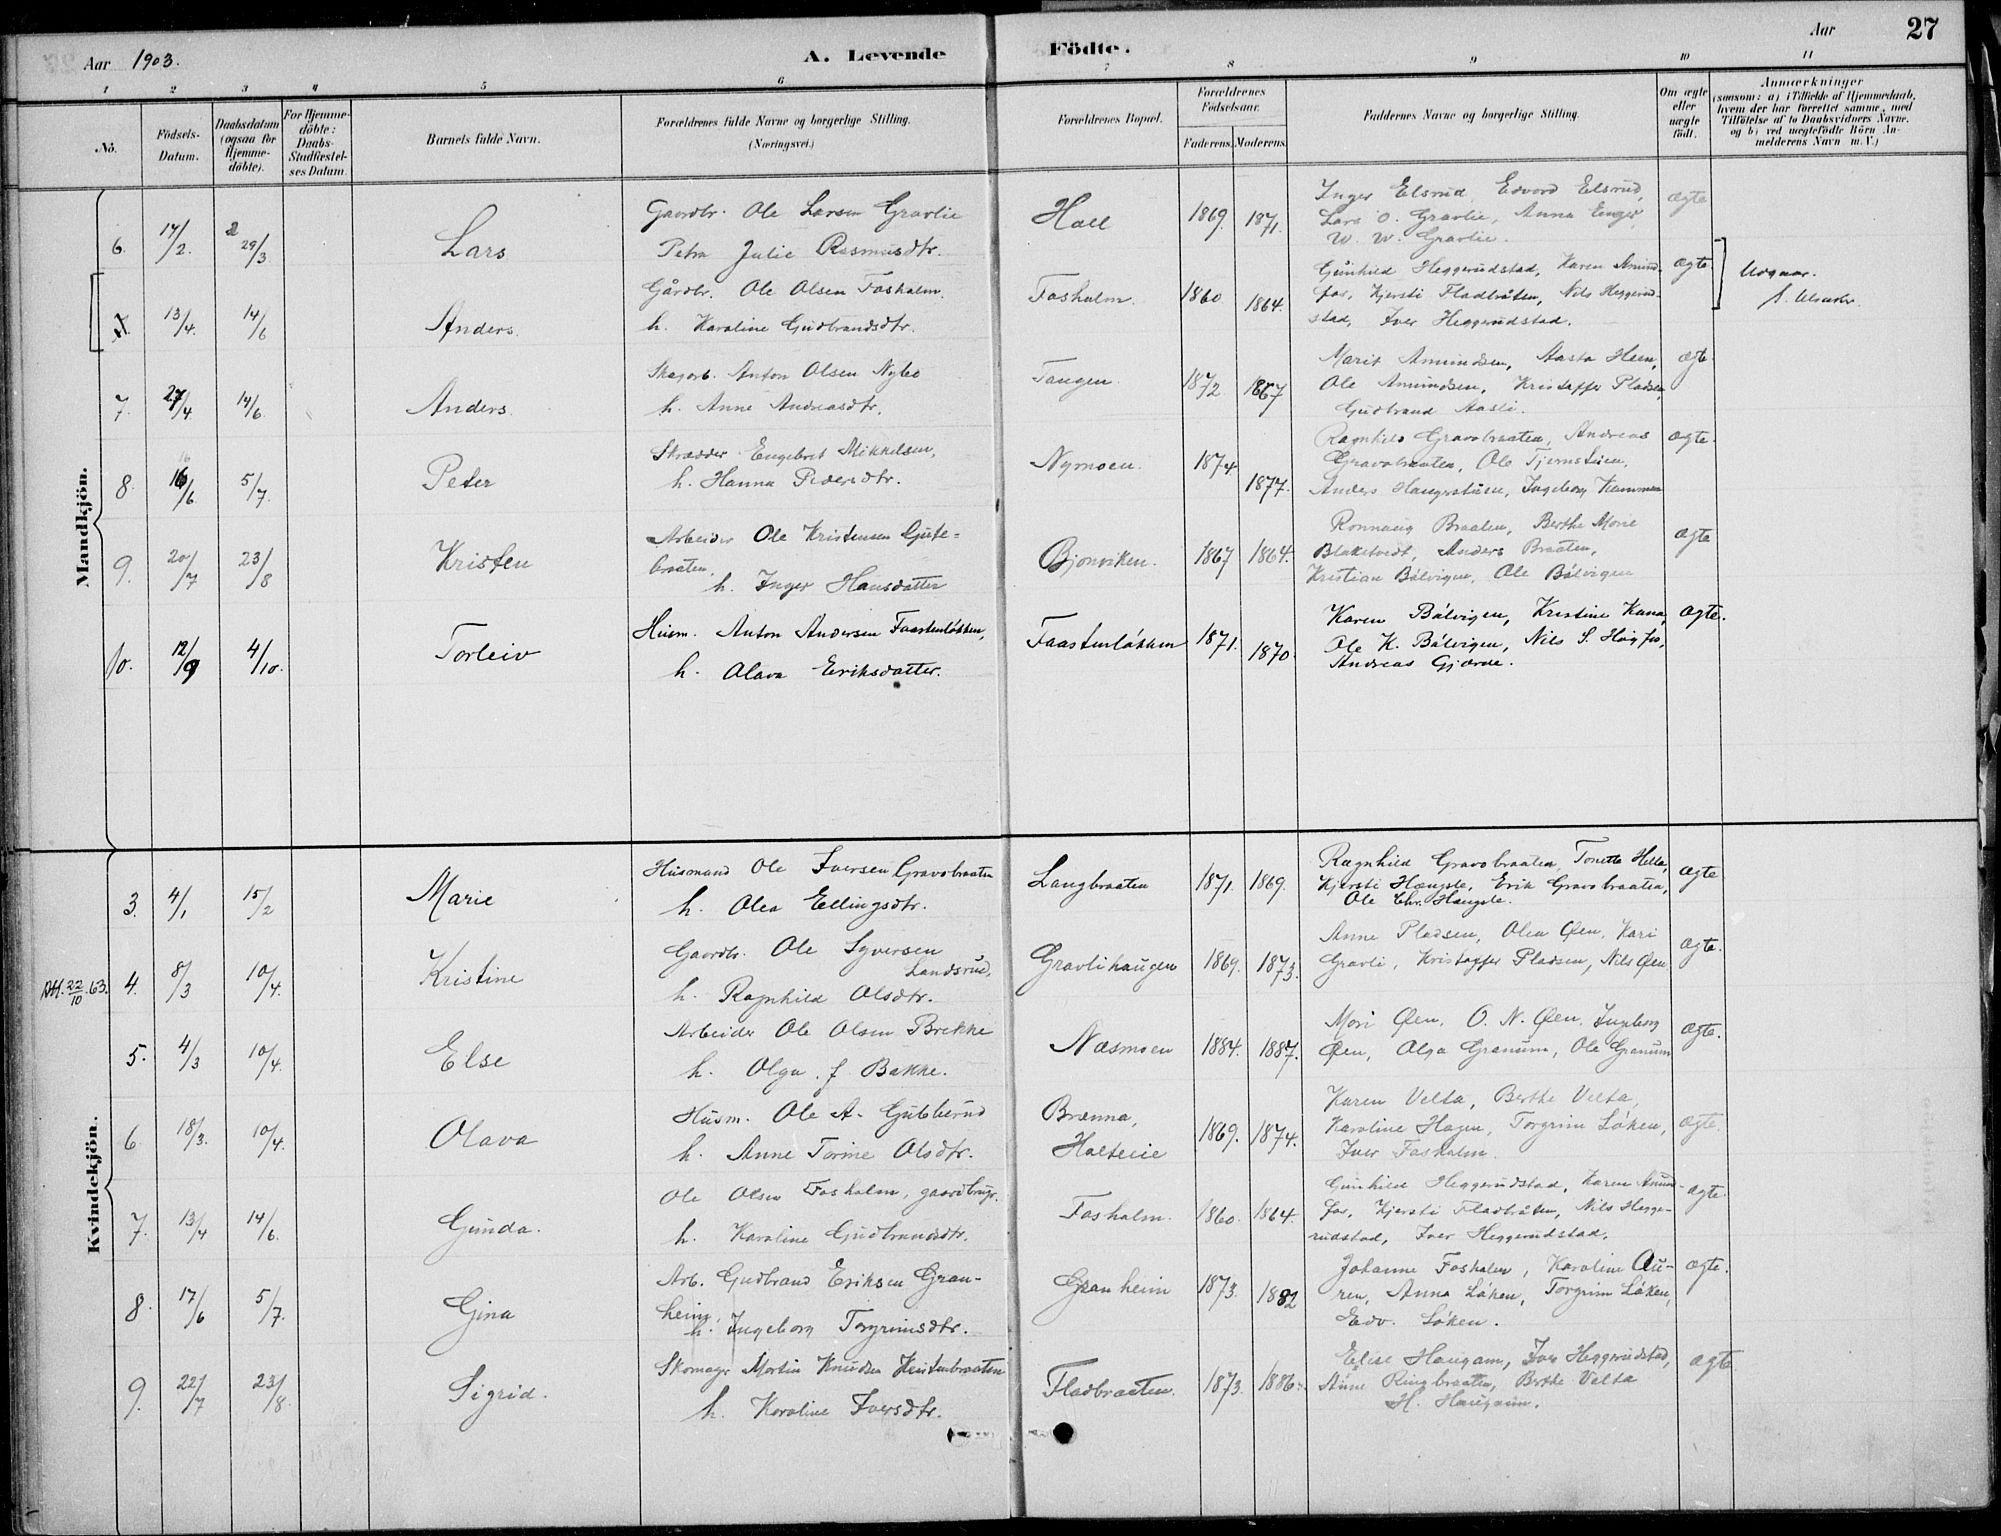 Aar 1903.
A. Levende Födte.
Aar 27
1 2 3 4 5 6 7 8 9 10 11
No.
Födsels-Datum.
Daabsdatum (ogsaa for Hjemmedöbte).
For Hjemmedöbte: Daabs-Stadfæstelses Datum.
Barnets fulde Navn.
Forældrenes fulde Navne og borgerlige Stilling.
(Næringsvei.)
Forældrenes Bopæl.
Forældrenes Födselsaar.
Faderens. Moderens.
Faddernes Navne og borgerlige Stilling.
Om ægte eller uægte født.
Anmærkninger
(saasom: a) i Tilfælde af Hjemmedaab, hvem der har forrettet samme, med Tilföielse af to Daabsvidners Navne, og b) ved uægtefödte Börn Anmelderens Navn m. V.)
Mandkjön.
6. 17/2. 29/3 Lars
Gaardbr. Ole Larsen Gravlie
Petra Julie Rasmusdtr.
Hall 1869. 1871.
Inger Elsrud, Edvard Elsrud,
Lars O. Gravlie, Anna Enger,
W. W. Gravlie.
ægte
13/4. 14/6 Anders.
Gårdbr. Ole Olsen Fosholm.
h. Karoline Gudbrandsdtr.
Fosholm. 1860 1864.
Gunhild Heggerudstad, Karen Amund-
fos, Kjersti Fladbråten, Nils Heggerud-
stad, Iver Heggerudstad.
ægte.
Udgaar.
7. 27/4 14/6. Anders.
Skogarb. Anton Olsen Nybo
h. Anne Andreasdtr.
Tangen. 1872 1867
Marit Amundsen, Aasta Heen,
Ole Amundsen, Kristoffer Pladsen,
Gudbrand Aasli.
ægte
8. 16/6 5/7. Peter
Skrædder Engebret Mikkelsen,
h. Hanna Pedersdtr.
Nymoen. 1874 1877.
Ragnhild Gravobraaten, Andreas
Gravobraaten, Ole Tjernstuen,
Anders Haugerstuen, Ingeborg Kammen
ægte.
9. 20/7 23/8 Kristen
Arbeider Ole Kristensen Gjute-
braaten.
h. Inger Hansdatter
Bjonviken. 1867 1864.
Ronnaug Braaten, Berthe Marie
Blaketvedt, Anders Braaten,
Kristian Bålvigen, Ole Bålvigen
ægte
10. 12/9 4/10. Torleiv
Husm. Anton Andersen Faastenløkken,
h. Olava Eriksdatter.
Faastenløkken 1871. 1870.
Karen Bålvigen, Kristine Kana,
Ole K. Bålvigen, Nils S. Høgfos,
Andreas Gjærde.
ægte.
Kvindekjön.
3. 4/1 15/2 Marie
Husmand Ole Iversen Gravobraaten
h. Olea Ellingsdtr.
Langbraaten 1871. 1869.
Ragnhild Gravobraaten, Tonetta Hella,
Kjersti Haugsle, Erik Gravobraaten,
Ole Chr. Haugsle.
ægte
22/10.63. 4. 8/3 10/4. Kristine
Gaardbr. Ole Syversen
Landsrud,
h. Ragnhild Olsdtr.
Gravlihaugen 1869. 1873.
Anne Pladsen, Olea Øen, Kari
Gravli, Kristoffer Pladsen, Nils Øen
ægte.
5. 4/3 10/4. Else
Arbeider Ole Olsen Brekke
h. Olga f. Bakke.
Næsmoen 1884. 1887.
Mari Øen, O. N. Øen, Ingeborg
Øen, Olga Granum, Ole Granum
ægte.
6. 18/3. 10/4. Olava
Husm. Ole A. Gubberud
h. Anne Torine Olsdtr.
Brænna,
Halteie 1869. 1874.
Karen Velta, Berthe Velta,
Karoline Hagen, Torgrim Løken,
Iver Fosholm.
ægte.
7. 13/4 14/6. Gunda.
Ole Olsen Fosholm, gaardbrugr.
h. Karoline Gudbrandsdtr.
Fosholm. 1860. 1864.
Gunhild Heggerudstad, Karen Amund-
fos, Kjersti Fladbråten, Nils Hegge-
rudstad, Iver Heggerudstad.
ægte
8. 17/6 5/7. Gina
Arb. Gudbrand Eriksen Gran-
heim,
h. Ingeborg Torgrimsdtr.
Granheim 1873. 1882
Johanne Fosholm, Karoline Au-
ren, Anna Løken, Torgrim Løken,
Edv. Løken.
ægte.
9. 22/7 23/8. Sigrid.
Skomager Martin Knudsen Keistenbraaten
h. Karoline Iversdtr.
Fladbraaten. 1873. 1886.
Elise Haugann, Iver Heggerudstad,
Anne Ringbraaten, Berthe Velta
H. Haugann.
ægte